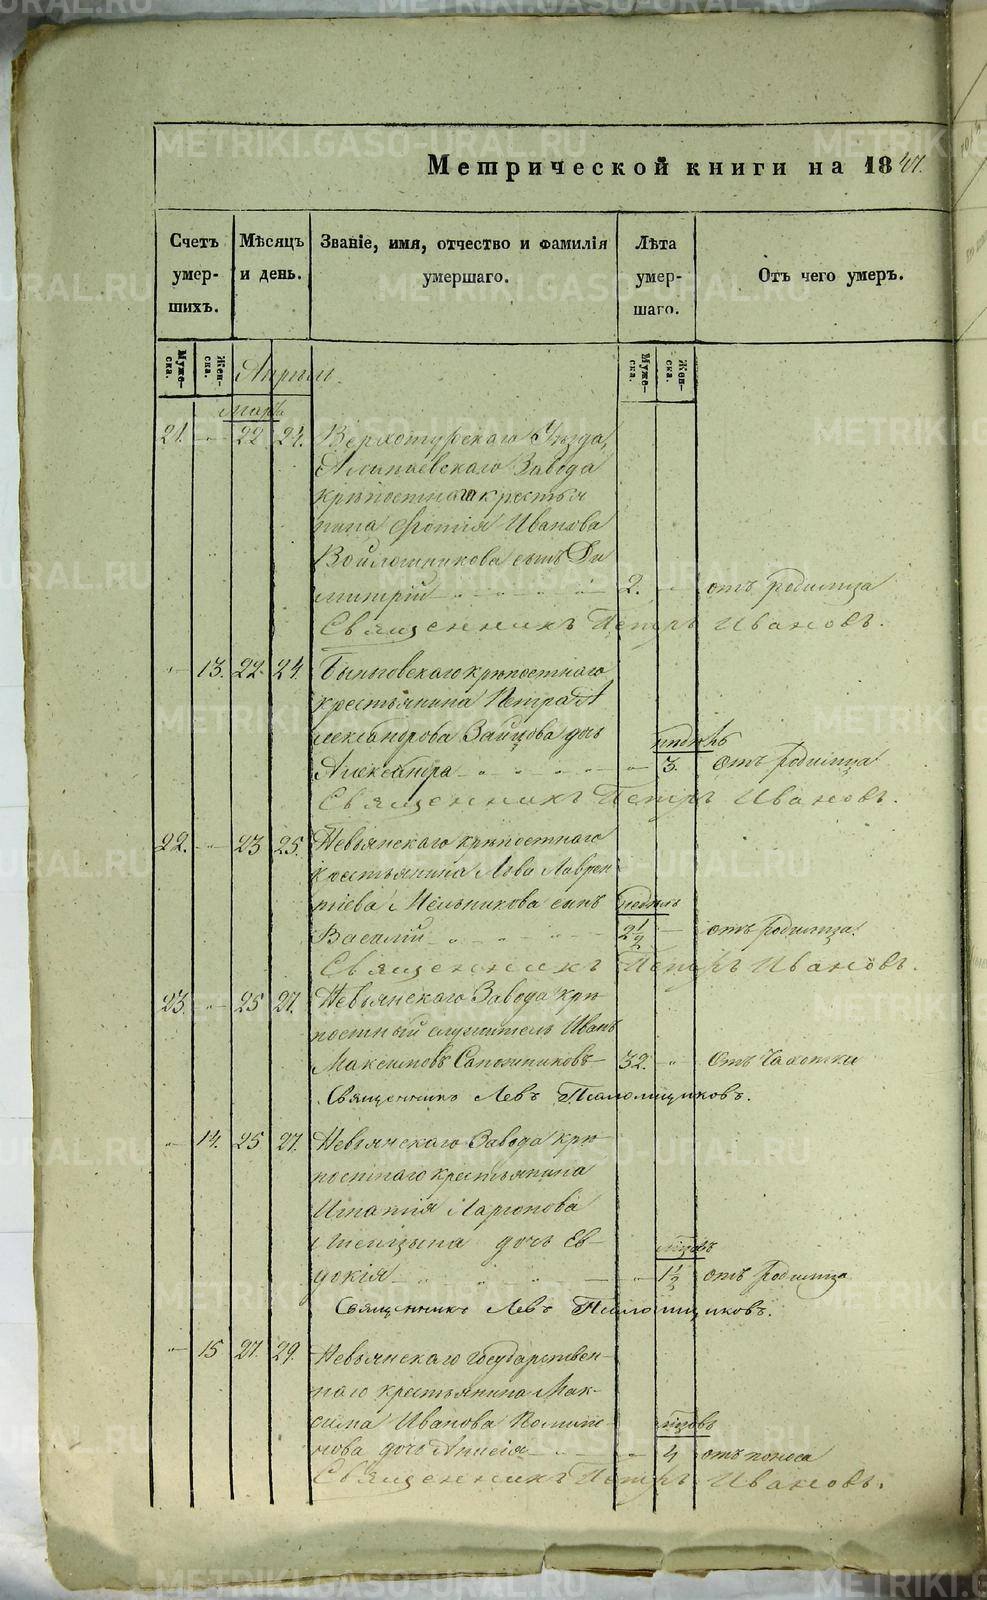 METRIKI.GASO-URAL.RU
Метрической книги на 1847.
Счетъ умер- шихъ.
Мѣсяцъ и день.
Званіе, имя, отчество и фамилія умершаго.
Лѣта умер- шаго.
Отъ чего умеръ.
Муже- ска.
Жен- ска.
Муже- ска.
Жен- ска.
Апрѣль.
21. 22 24. Верхотурскаго Уѣзда,
Алапаевскаго Завода
крѣпостнаго крестья
нина Фотія Иванова
Войлошникова сынъ Ди
митрій 2. отъ родимца
Священникъ Петръ Ивановъ.
13. 22. 24. Быньговскаго крѣпостнаго
крестьянина Петра А
лександрова Зайцова дочь
недѣль
Александра 3. отъ родимца
Священникъ Петръ Ивановъ.
22. 23 25. Невьянскаго крѣпостнаго
крестьянина Льва Лаврен
тіева Мельникова сынъ недѣль
Василій 2½ отъ родимца.
Священникъ Петръ Ивановъ.
23. 25 27. Невьянскаго Завода крѣ
постный служитель Иванъ
Максимовъ Сапожниковъ 32. Отъ Чахотки
Священникъ Левъ Псаломщиковъ.
14. 25 27. Невьянскаго Завода крѣ
постнаго крестьянина
Игнатія Ларіонова
дочь Ев-
докія 1½ отъ родимца
Священникъ Левъ Псаломщиковъ.
15 27. 29. Невьянскаго государствен-
наго крестьянина Мак-
сима Иванова
дочь Анисія 4 отъ поноса
Священникъ Петръ Ивановъ.